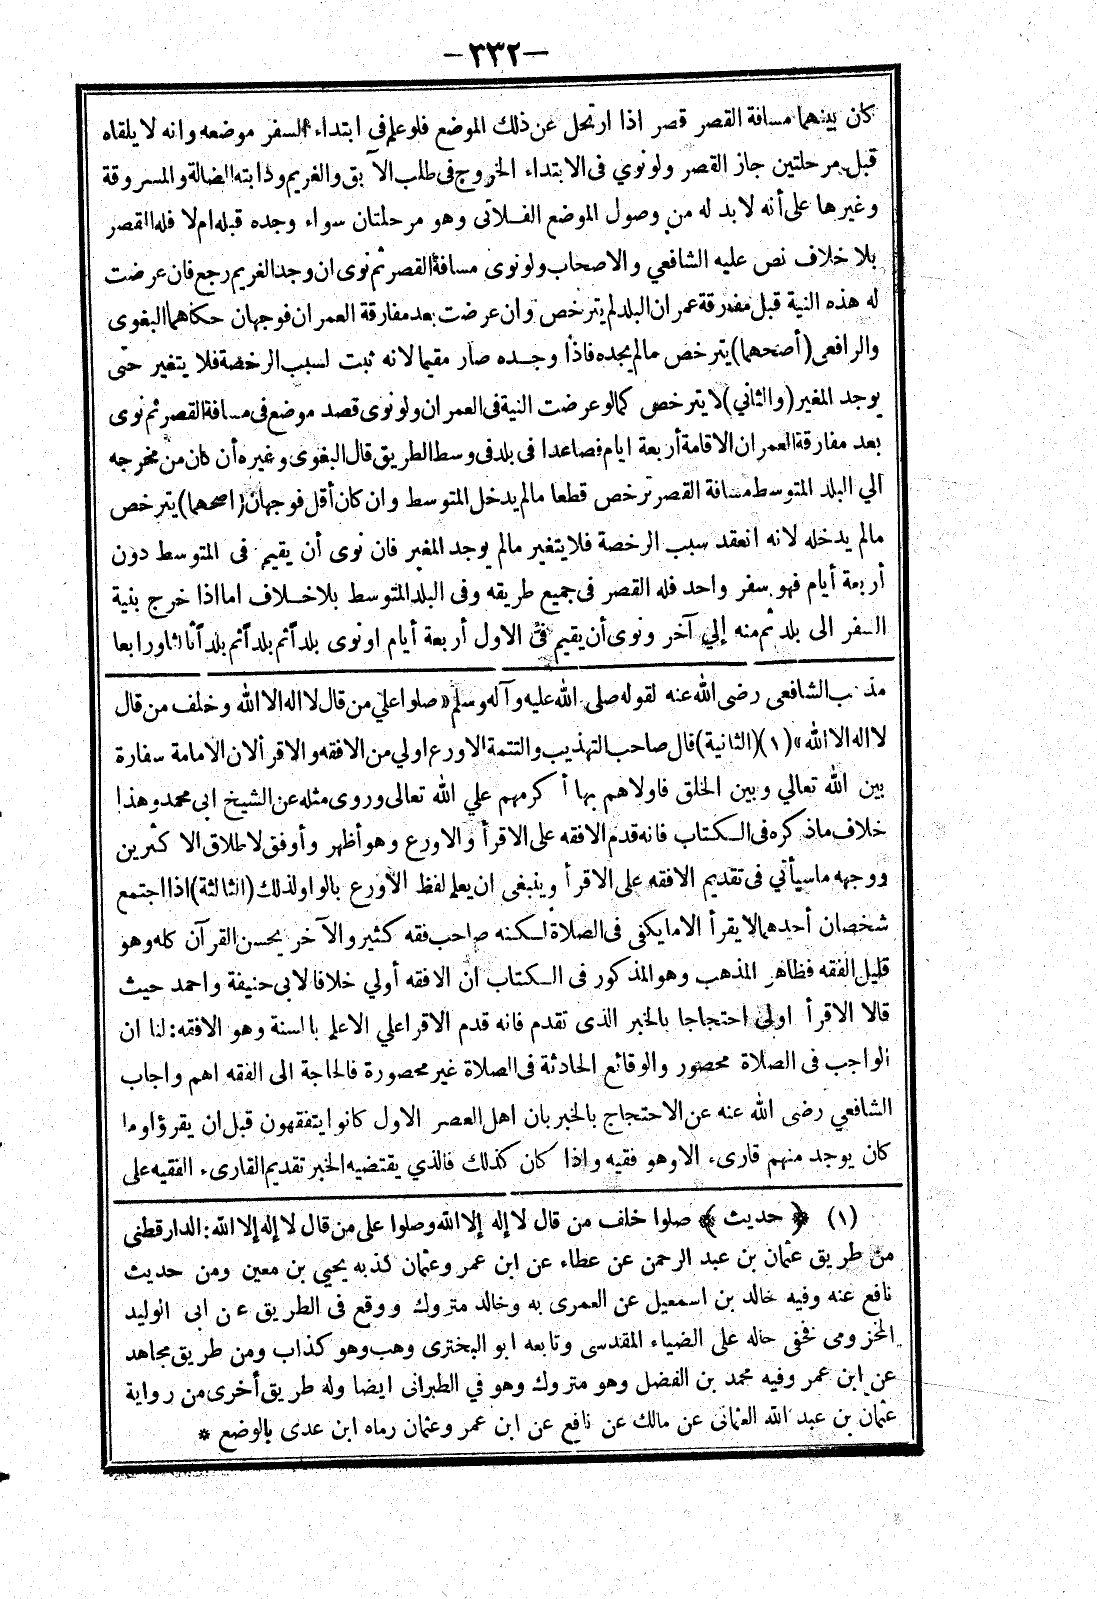 —٣٣٢—
كان بينهما مسافة القصر قصر اذا ارتحل عن ذلك الموضع فلو علم في ابتداء السفر موضعه وانه لا يلقاه
قبل مرحلتين جاز القصر ولو نوي فى الابتداء الخروج فى طلب الآبق والغريم ودابته الضالة والمسروقة
وغيرها على أنه لابد له من وصول الموضع الفلانى وهو مرحلتان سواء وجده قبله ام لا فله القصر
بلا خلاف نص عليه الشافعي والاصحاب ولو نوى مسافة القصر ثم نوى ان وجد الغريم رجع فان عرضت
له هذه النية قبل مفارقة عمران البلد لم يترخص وان عرضت بعد مفارقة العمران فوجهان حكاهما البغوى
والرافعى (أصحهما) يترخص مالم يجده فاذا وجده صار مقيما لانه ثبت لسبب الرخصة فلا يتغير حتى
يوجد المغير (والثاني) لا يترخص كما لو عرضت النية فى العمران ولو نوى قصد موضع فى مسافة القصر ثم نوى
بعد مفارقة العمران الاقامة أربعة ايام فصاعدا فى بلد فى وسط الطريق قال البغوى وغيره أن كان من مخرجه
الي البلد المتوسط مسافة القصر ترخص قطعا مالم يدخل المتوسط وان كان أقل فوجهان (اصحهما) يترخص
مالم يدخله لانه انعقد سبب الرخصة فلا يتغير مالم يوجد المغير فان نوى أن يقيم فى المتوسط دون
أربعة أيام فهو سفر واحد فله القصر فى جميع طريقه وفى البلد المتوسط بلا خلاف اما اذا خرج بنية
السفر الى بلد ثم منه إلي آخر ونوى أن يقيم فى الاول أربعة أيام او نوى بلداً ثم بلداً ثم بلداً ثالثا ورابعا
مذهب الشافعى رضى الله عنه لقوله صلى الله عليه وآله وسلم « صلوا علي من قال لا اله الا الله وخلف من قال
لا اله الا الله » (١) (الثانية) قال صاحب التهذيب والتتمة الاورع اولي من الافقه والاقرأ لان الامامة سفارة
بين الله تعالي وبين الخلق فاولاهم بها أكرمهم علي الله تعالى وروى مثله عن الشيخ ابى محمد وهذا
خلاف ماذكره فى الكتاب فانه قدم الافقه على الاقرأ والاورع وهو أظهر وأوفق لاطلاق الاكثرين
ووجهه ما سيأتي فى تقديم الافقه على الاقرأ وينبغى ان يعلم لفظ الاورع بالواو لذلك (الثالثة) اذا اجتمع
شخصان أحدهما لا يقرأ الا ما يكفى فى الصلاة لكنه صاحب فقه كثير والآخر يحسن القرآن كله وهو
قليل الفقه فظاهر المذهب وهو المذكور فى الكتاب ان الافقه أولي خلافا لابى حنيفة واحمد حيث
قالا الاقرأ اولى احتجاجا بالخبر الذى تقدم فانه قدم الاقرا علي الاعلم بالسنة وهو الافقه: لنا ان
الواجب فى الصلاة محصور والوقائع الحادثة فى الصلاة غير محصورة فالحاجة الى الفقه اهم واجاب
الشافعي رضى الله عنه عن الاحتجاج بالخبر بان اهل العصر الاول كانوا يتفقهون قبل ان يقرؤا وما
كان يوجد منهم قارىء الا وهو فقيه واذا كان كذلك فالذي يقتضيه الخبر تقديم القارىء الفقيه على
(١) ﴿ حديث ﴾ صلوا خلف من قال لا إله إلا الله وصلوا على من قال لا إله إلا الله: الدارقطنى
من طريق عثمان بن عبد الرحمن عن عطاء عن ابن عمر وعثمان كذبه يحيي بن معين ومن حديث
نافع عنه وفيه خالد بن اسمعيل عن العمرى به وخالد متروك ووقع فى الطريق عن ابى الوليد
المخزومى فخفى حاله على الضياء المقدسى وتابعه ابو البخترى وهب وهو كذاب ومن طريق مجاهد
عن ابن عمر وفيه محمد بن الفضل وهو متروك وهو في الطبرانى ايضا وله طريق أخرى من رواية
عثمان بن عبد الله العثمانى عن مالك عن نافع عن ابن عمر وعثمان رماه ابن عدى بالوضع *